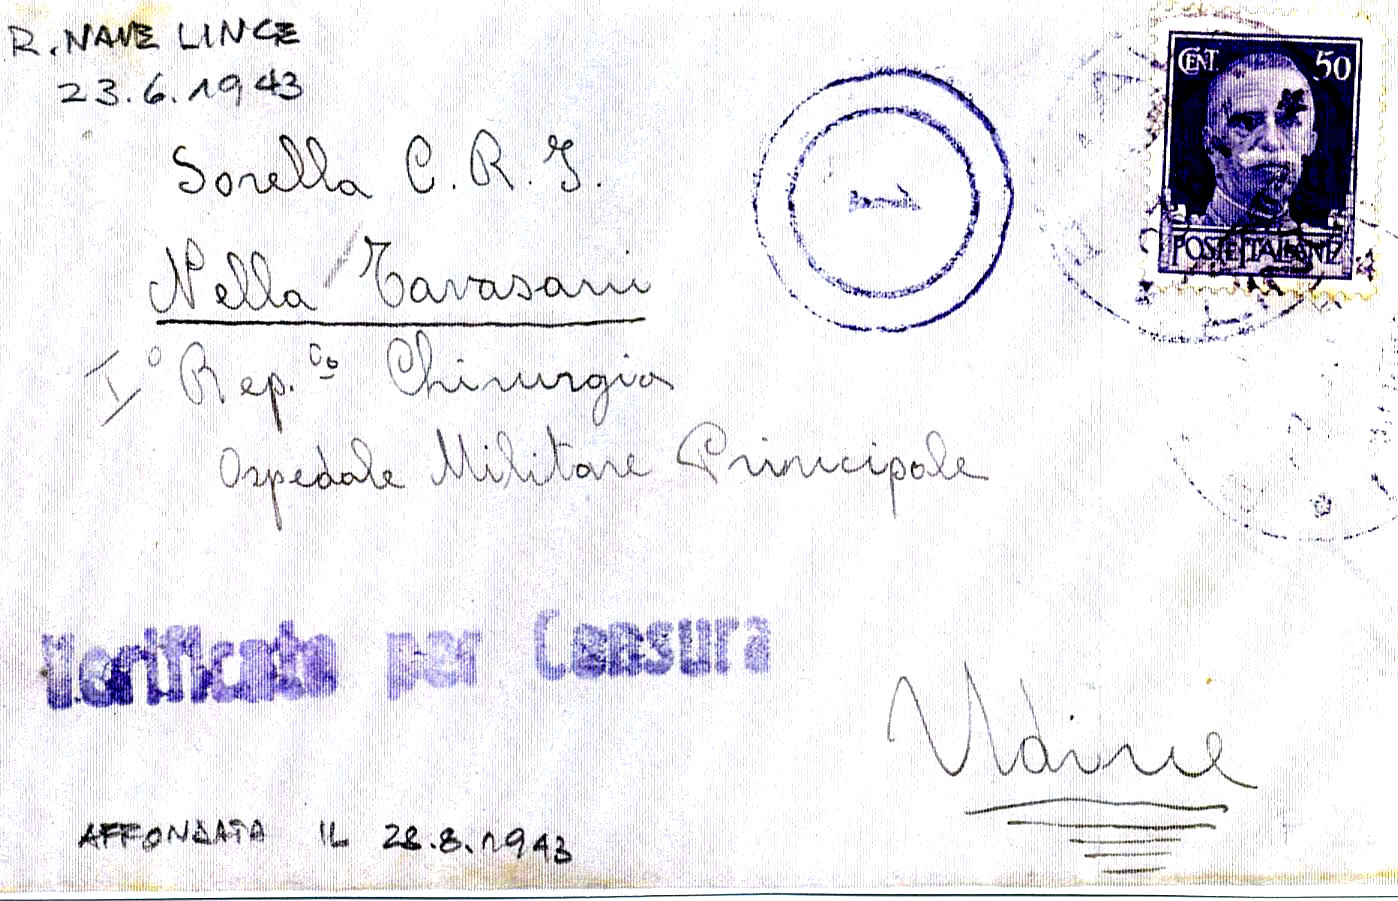 R. NAVE LINCE
23.6.1943
CENT. 50
POSTE ITALIANE
Sorella C. R. I.
Nella Tavasani
I° Rep. Co Chirurgia
Ospedale Militare Principale
Verificato per Censura
Udine
AFFONDATA IL 28.8.1943